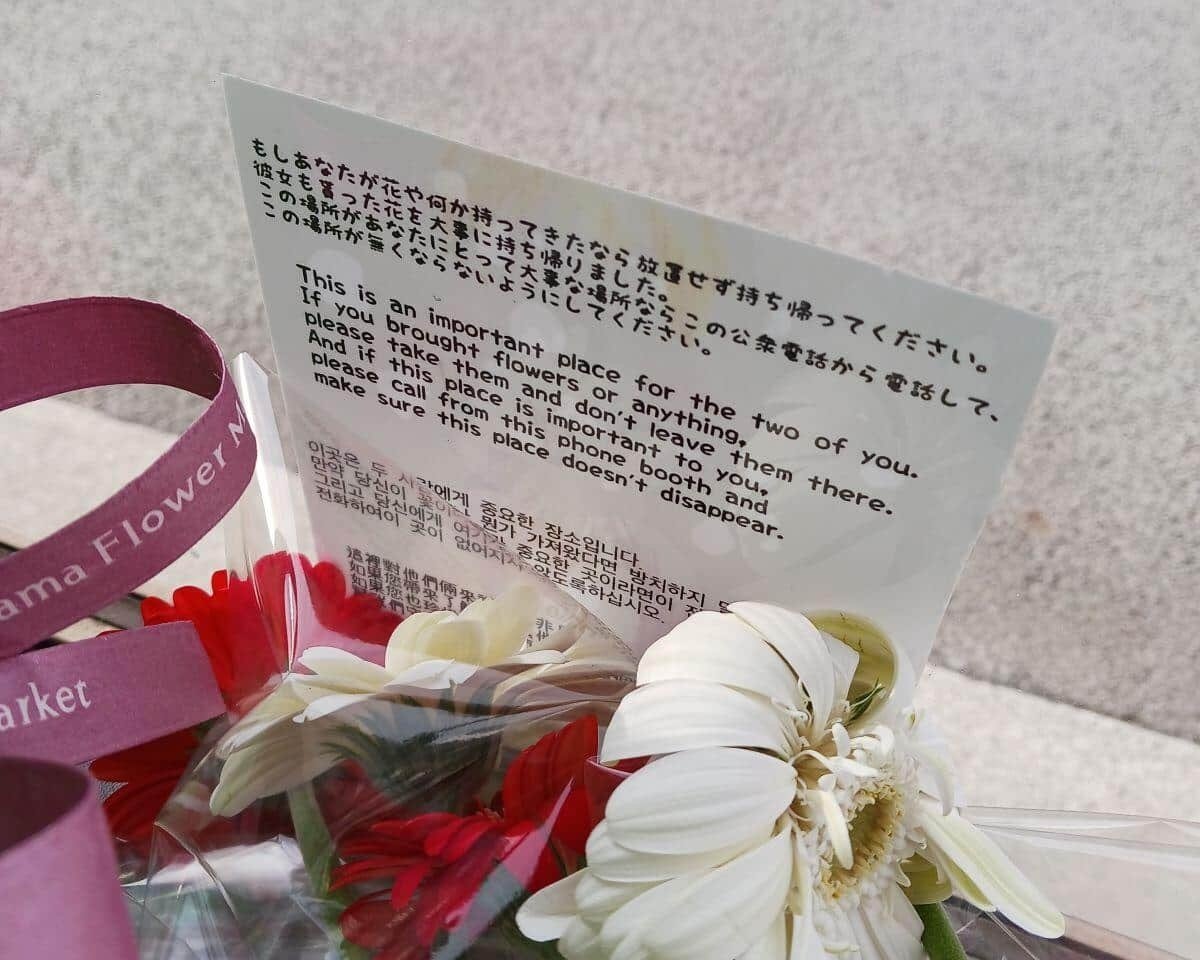 もしあなたが花や何か持ってきたなら放置せず持ち帰ってください。
彼女も貰った花を大事に持ち帰りました。
この場所があなたにとって大事な場所ならこの公衆電話から電話して、
この場所が無くならないようにしてください。
This is an important place for the two of you.
If you brought flowers or anything,
please take them and don't leave them there.
And if this place is important to you,
please call from this phone booth and
make sure this place doesn't disappear.
이곳은 두 사람에게 중요한 장소입니다
만약 당신이 뭔가 가져왔다면 방치하지
그리고 당신에게 중요한 곳이라면 이
전화하여이 곳이 없어지지 않도록하십시오.
這裡對他們倆來
如果您帶來了
ama Flower M
arket